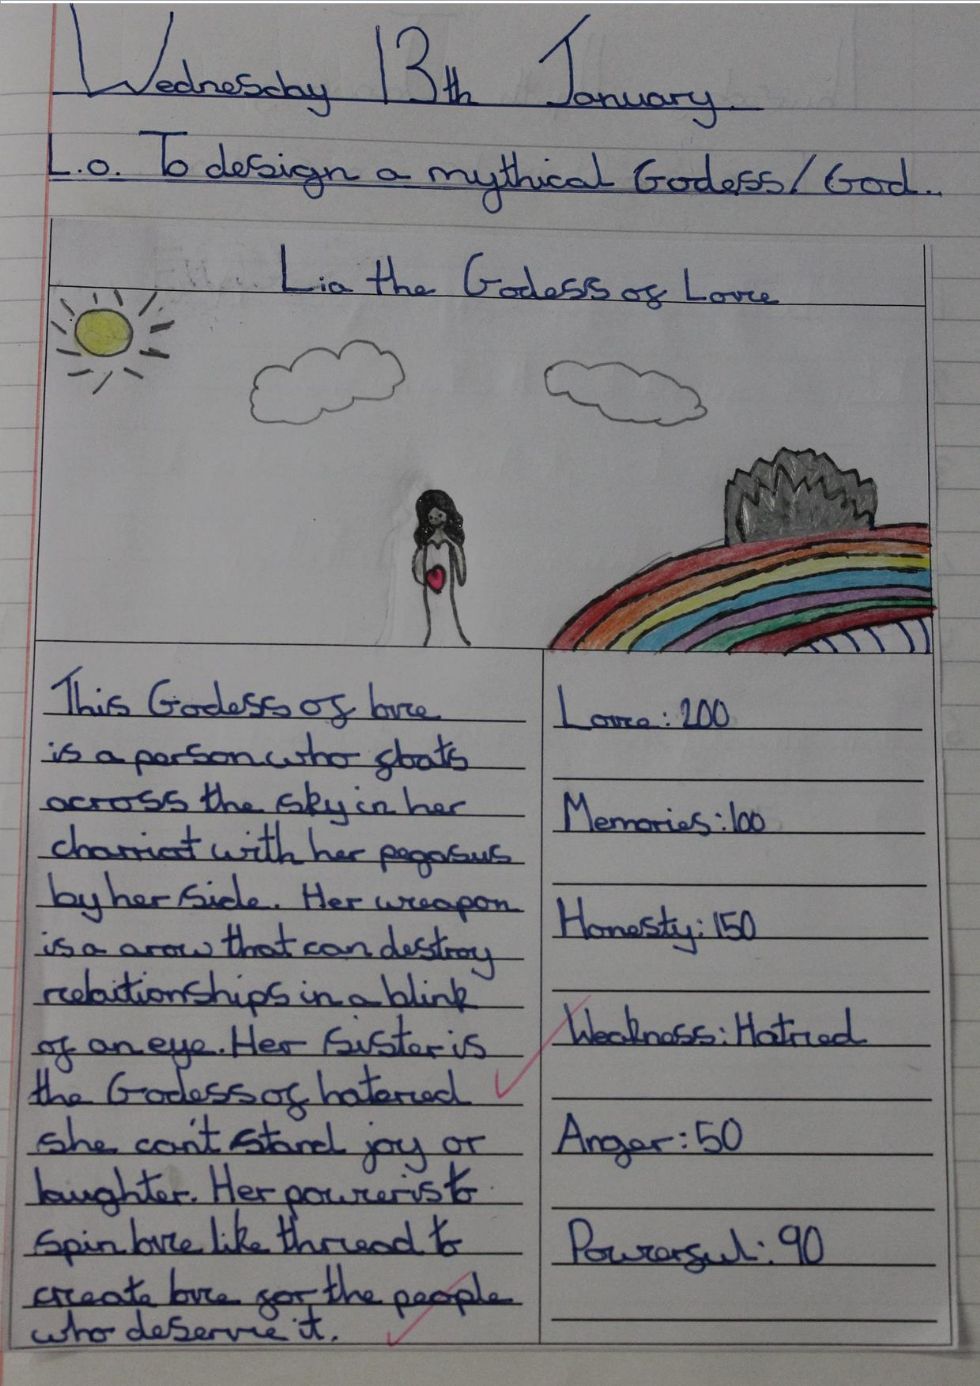 Wednesday 13th January.
L.o. To design a mythical Godess/God.
Lia the Godess of Love
This Godess of love
is a person who floats
across the sky in her
charriot with her pegasus
by her side. Her weapon
is a arow that can destroy
relaitionships in a blink
of an eye. Her sister is
the Godess of hatered
she can't stand joy or
laughter. Her power is to
spin love like thread to
create love for the people
who deserve it.
Love: 200
Memories: 100
Honesty: 150
Weakness: Hatred
Anger: 50
Powerful: 90